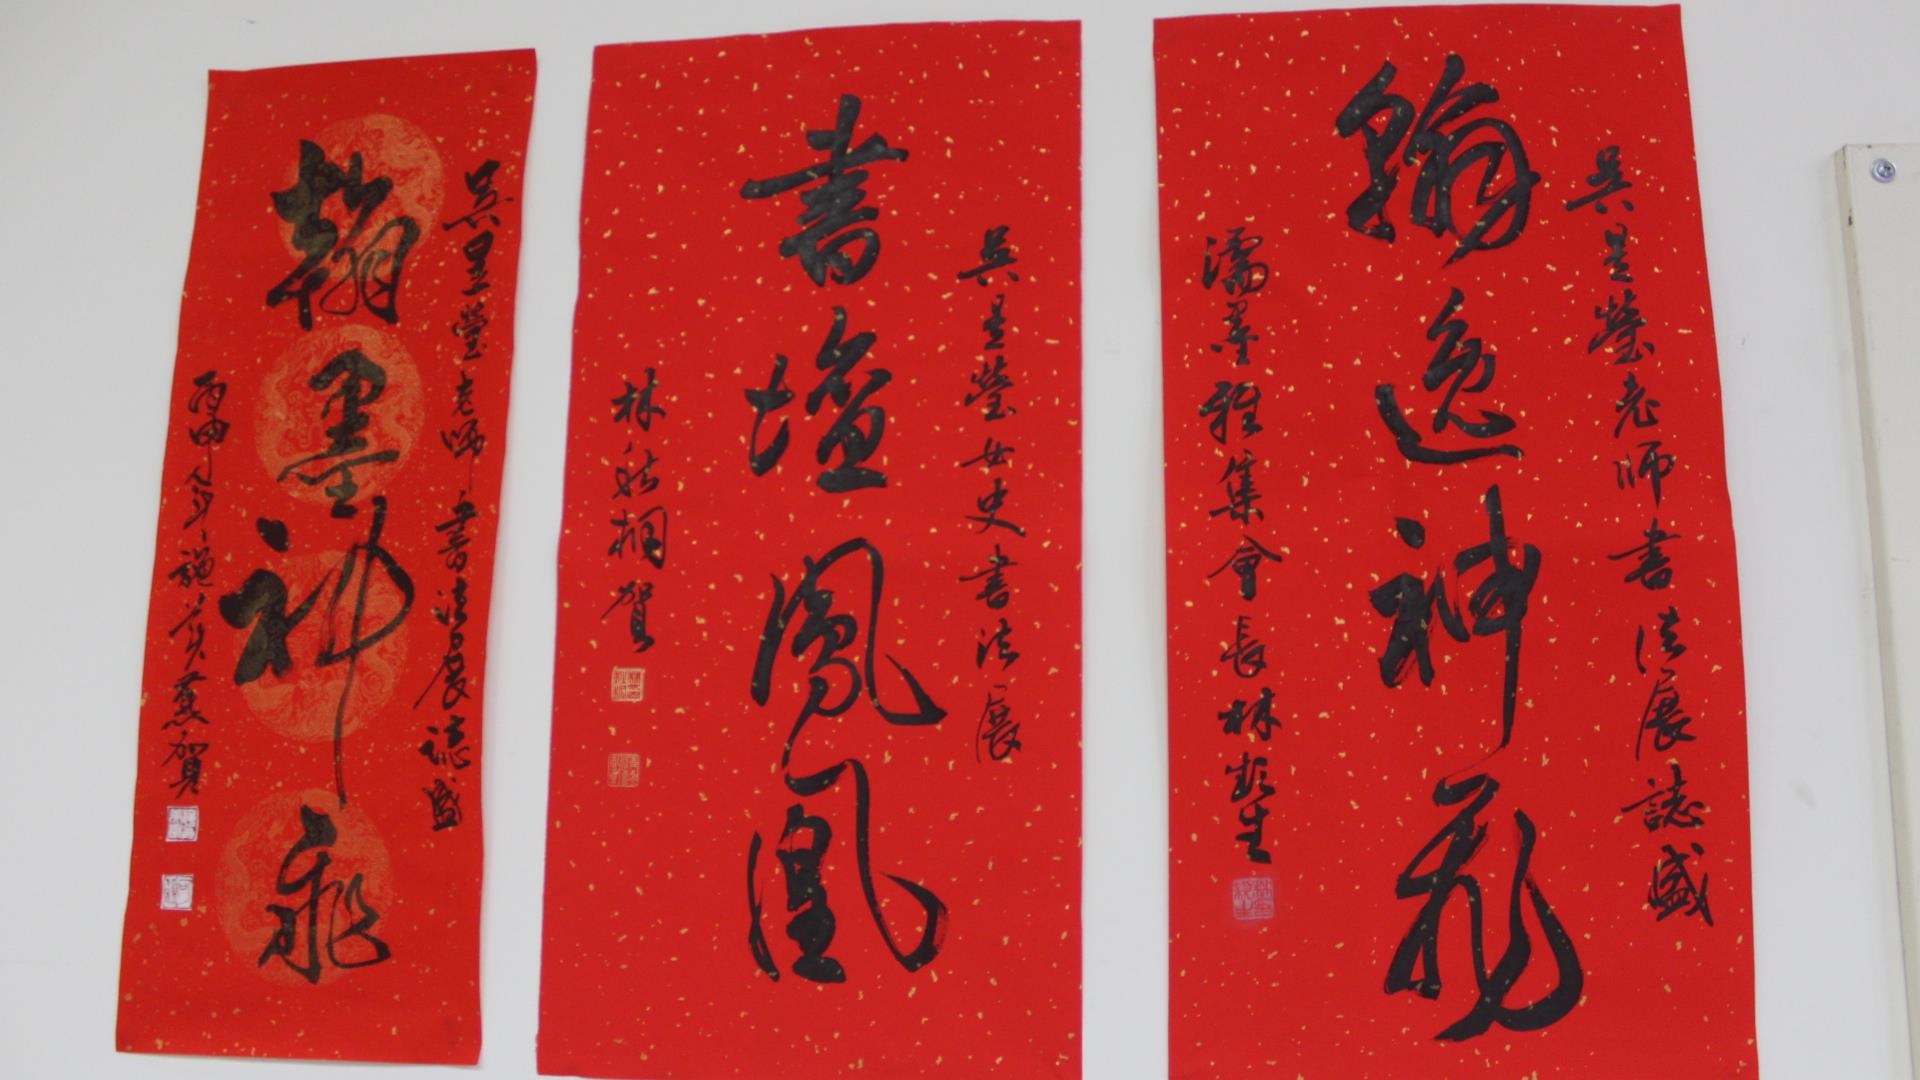 吳星瑩老師書法展誌盛
翰逸神飛
濡墨雅集會長林生
吳星瑩女史書法展
書壇鳳凰
林桐賀
吳星瑩老師書法展誌盛
翰墨神飛
丙申施賀